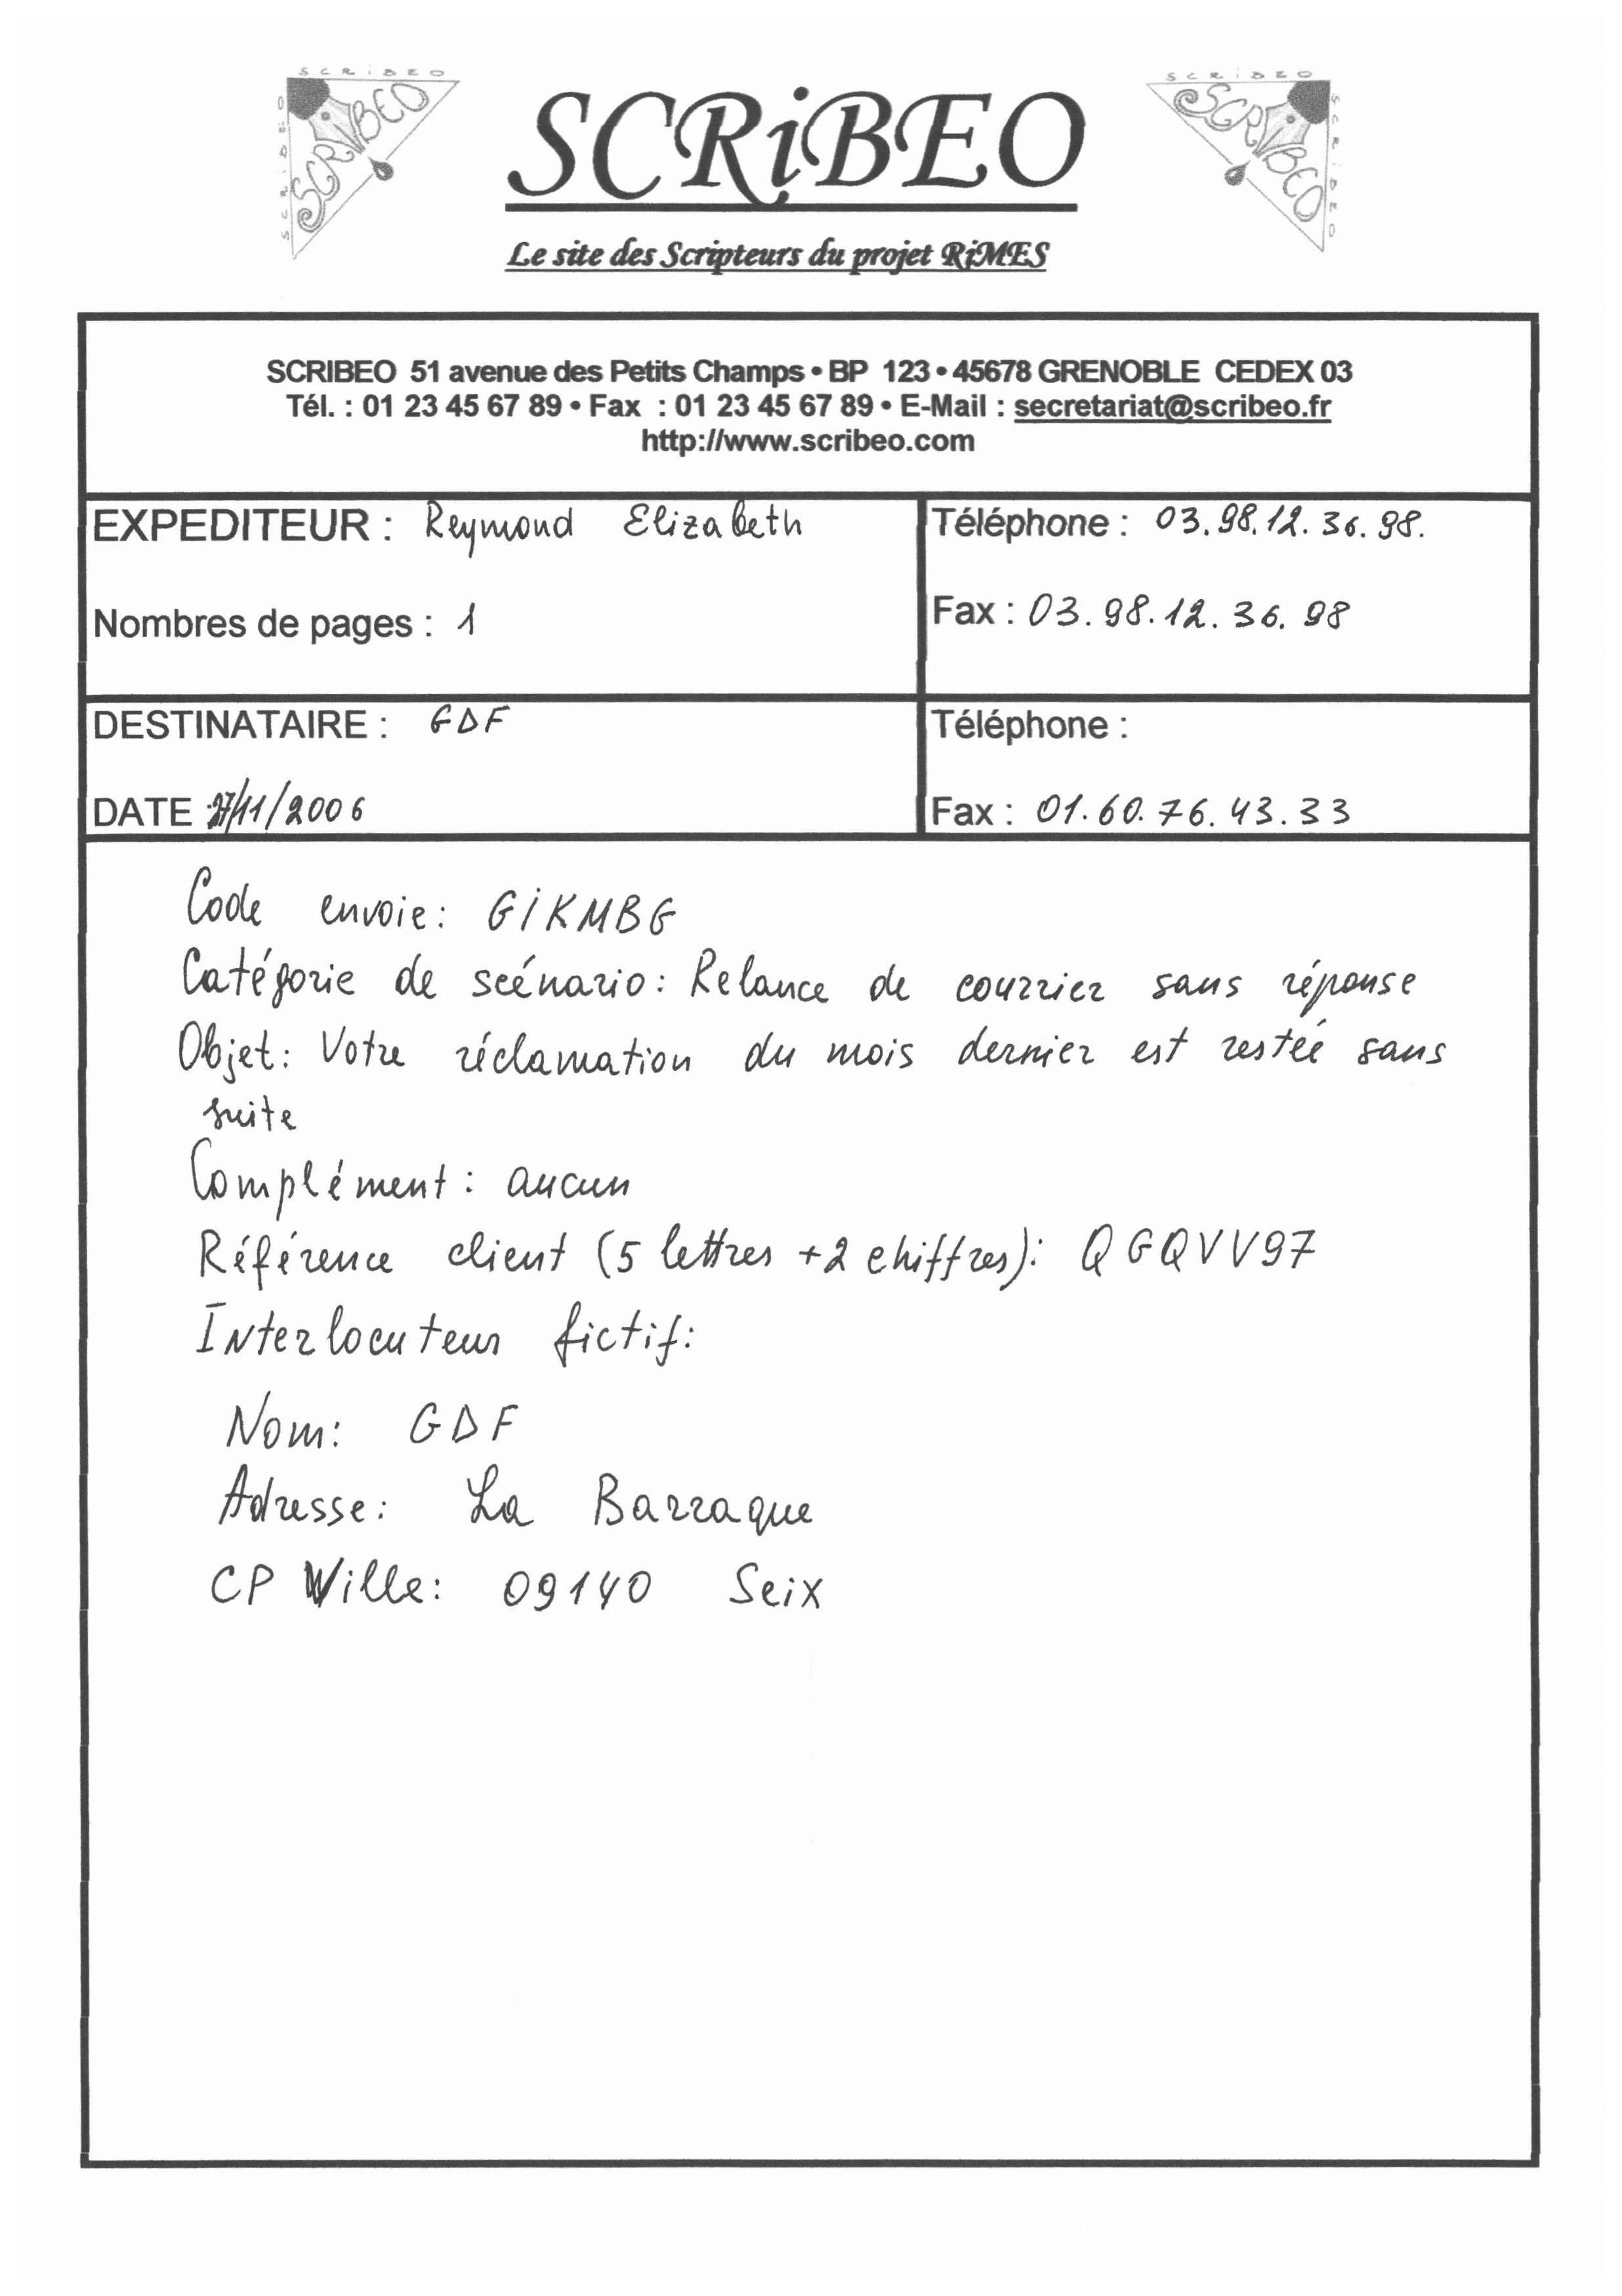 SCRiBEO
SCRiBEO
SCRiBEO
SCRiBEO
SCRiBEO
SCRiBEO
SCRiBEO
Le site des Scripteurs du projet RiMES
SCRIBEO 51 avenue des Petits Champs • BP 123 • 45678 GRENOBLE CEDEX 03
Tél. : 01 23 45 67 89 • Fax : 01 23 45 67 89 • E-Mail : secretariat@scribeo.fr
http://www.scribeo.com
EXPEDITEUR : Reymond Elizabeth
Téléphone : 03.98.12.36.98.
Nombres de pages : 1
Fax : 03.98.12.36.98
DESTINATAIRE : GDF
Téléphone :
DATE : 27/11/2006
Fax : 01.60.76.43.33
Code envoie: GiKMBG
Catégorie de scénario: Relance de courrier sans réponse
Objet: Votre réclamation du mois dernier est restée sans
suite
Complément: aucun
Référence client (5 lettres +2 chiffres): QGQVV97
Interlocuteur fictif:
Nom: GDF
Adresse: La Barraque
CP Ville: 09140 Seix